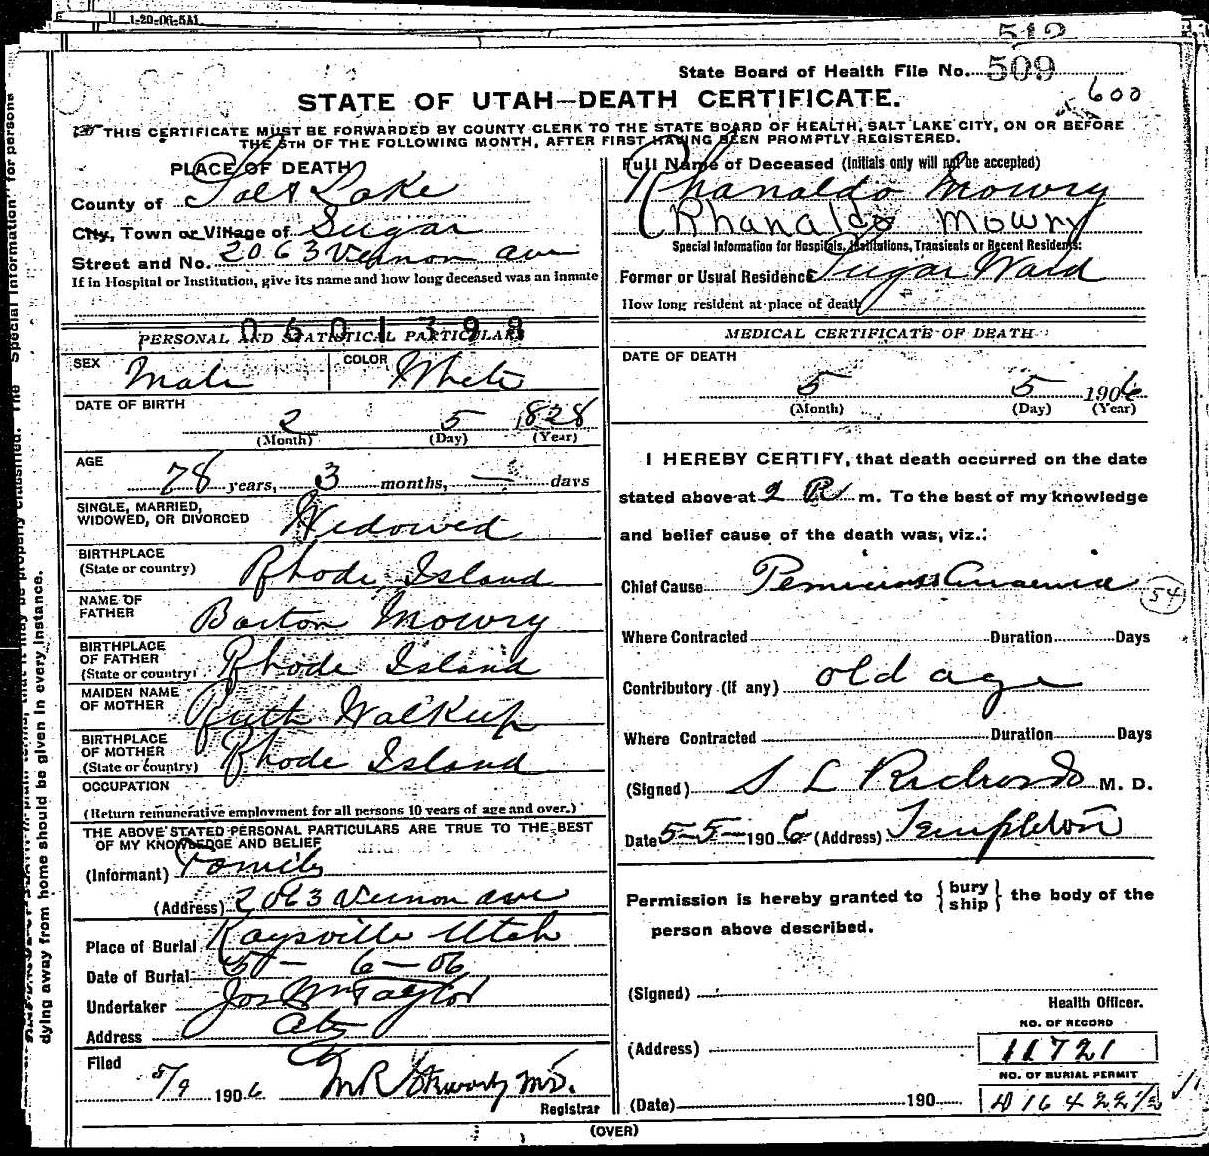 1-20-06-5M
512
State Board of Health File No. 509
600
STATE OF UTAH—DEATH CERTIFICATE.
THIS CERTIFICATE MUST BE FORWARDED BY COUNTY CLERK TO THE STATE BOARD OF HEALTH, SALT LAKE CITY, ON OR BEFORE
THE 5TH OF THE FOLLOWING MONTH, AFTER FIRST HAVING BEEN PROMPTLY REGISTERED.
PLACE OF DEATH
County of Salt Lake
City, Town or Village of Sugar
Street and No. 2063 Vernon ave
If in Hospital or Institution, give its name and how long deceased was an inmate
0601398
PERSONAL AND STATISTICAL PARTICULARS
SEX Male COLOR White
DATE OF BIRTH
2 5 1828
(Month) (Day) (Year)
AGE
78 years, 3 months, — days
SINGLE, MARRIED,
WIDOWED, OR DIVORCED Widowed
BIRTHPLACE
(State or country) Rhode Island
NAME OF
FATHER Barton Mowry
BIRTHPLACE
OF FATHER
(State or country) Rhode Island
MAIDEN NAME
OF MOTHER Ruth Walkup
BIRTHPLACE
OF MOTHER
(State or country) Rhode Island
OCCUPATION
(Return remunerative employment for all persons 10 years of age and over.)
THE ABOVE STATED PERSONAL PARTICULARS ARE TRUE TO THE BEST
OF MY KNOWLEDGE AND BELIEF
(Informant) Family
(Address) 2063 Vernon ave
Place of Burial Kaysville Utah
Date of Burial 5 — 6 — 06
Undertaker Jos Wm Taylor
Address City
Filed
5/9 1906 M.D.
Registrar
Full Name of Deceased (Initials only will not be accepted)
Rhanaldo Mowry
(Rhanaldo Mowry
Special Information for Hospitals, Institutions, Transients or Recent Residents:
Former or Usual Residence Sugar Ward
How long resident at place of death
MEDICAL CERTIFICATE OF DEATH
DATE OF DEATH
5 5 1906
(Month) (Day) (Year)
I HEREBY CERTIFY, that death occurred on the date
stated above at 2 P m. To the best of my knowledge
and belief cause of the death was, viz.:
Chief Cause Pernicious Anaemia 54
Where Contracted Duration Days
Contributory (if any) old age
Where Contracted Duration Days
(Signed) S L Richards M. D.
Date 5-5-1906 (Address) Templeton
Permission is hereby granted to {bury ship} the body of the
person above described.
(Signed)
Health Officer.
NO. OF RECORD
(Address) 11721
NO. OF BURIAL PERMIT
(Date) 190 D 16422 1/2
(OVER)
dying away from home should be given in every instance.